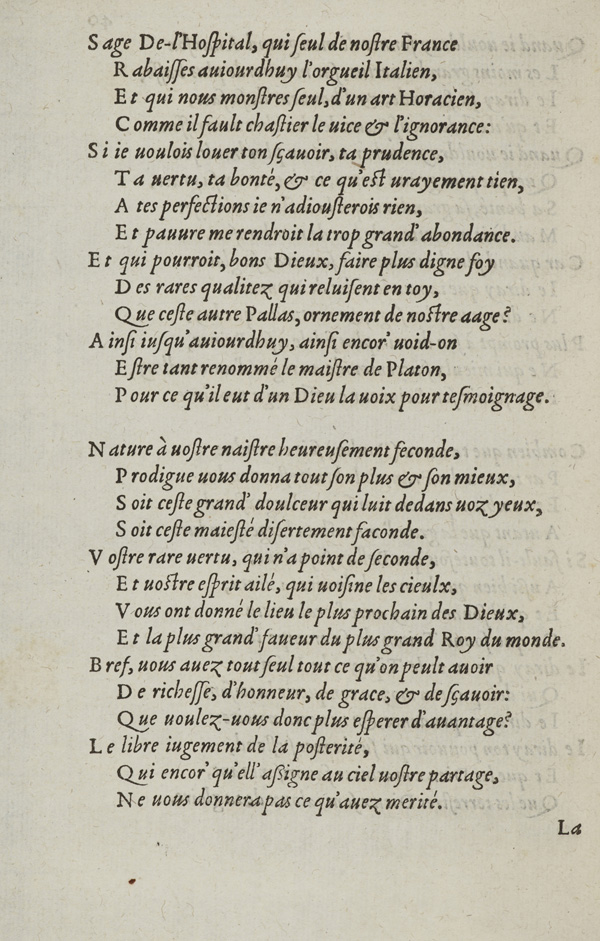 Sage De-l'Hoſpital, qui ſeul de noſtre France
Rabaiſſes auiourdhuy l'orgueil Italien,
Et qui nous monſtres ſeul, d'un art Horacien,
Comme il fault chaſtier le uice & l'ignorance:
Si ie uoulois louer ton ſçauoir, ta prudence,
Ta uertu, ta bonté, & ce qu'eſt urayement tien,
A tes perfections ie n'adiouſterois rien,
Et pauure me rendroit la trop grand' abondance.
Et qui pourroit, bons Dieux, faire plus digne foy
Des rares qualitez qui reluiſent en toy,
Que ceſte autre Pallas, ornement de noſtre aage?
Ainſi iuſqu'auiourdhuy, ainſi encor' uoid-on
Eſtre tant renommé le maiſtre de Platon,
Pour ce qu'il eut d'un Dieu la uoix pour teſmoignage.
Nature à uoſtre naiſtre heureuſement feconde,
Prodigue uous donna tout ſon plus & ſon mieux,
Soit ceſte grand' doulceur qui luit dedans uoz yeux,
Soit ceſte maieſté diſertement faconde.
Voſtre rare uertu, qui n'a point de ſeconde,
Et uoſtre eſprit ailé, qui uoiſine les cieulx,
Vous ont donné le lieu le plus prochain des Dieux,
Et la plus grand' faueur du plus grand Roy du monde.
Bref, uous auez tout ſeul tout ce qu'on peult auoir
De richeſſe, d'honneur, de grace, & de ſçauoir:
Que uoulez-uous donc plus eſperer d'auantage?
Le libre iugement de la poſterité,
Qui encor' qu'ell' aſsigne au ciel uoſtre partage,
Ne uous donnera pas ce qu'auez merité.
La